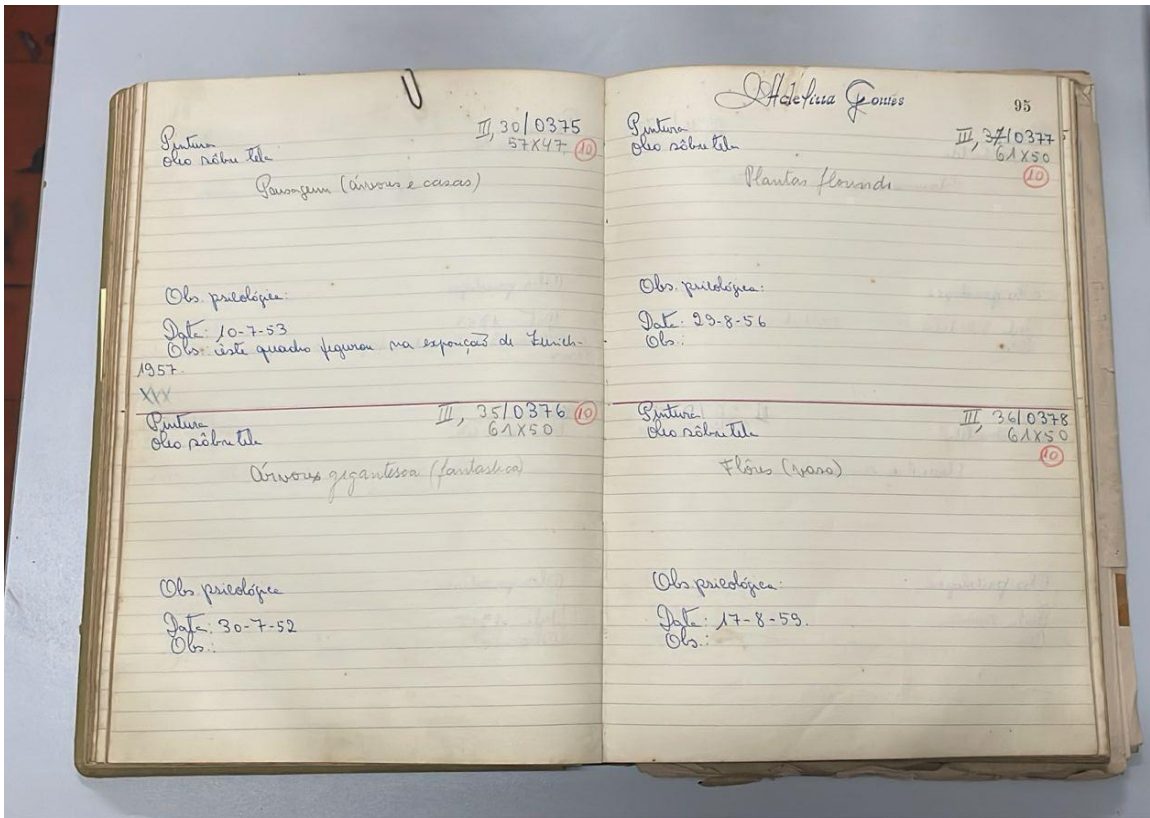 Pintura
II, 30/0375
oleo sôbre tela
57X47 10
Paisagem (árvores e casas)
Obs. psicológica:
Data: 10-7-53
Obs: êste quadro figurou na exposição de Zurich-
1957.
XXX
Pintura
III, 35/0376 10
oleo sôbre tela
61X50
Árvores gigantesca (fantastica)
Obs. psicológica
Data: 30-7-52
Obs.:
Adelina Gomes
95
Pintura
III, 0377
oleo sôbre tela
61X50
10
Plantas florindo
Obs. psicológica:
Data: 29-8-56
Obs.:
Pintura
III, 36/0378
oleo sôbre tela
61X50
10
Flôres (vaso)
Obs psicológica:
Data: 17-8-59.
Obs.: